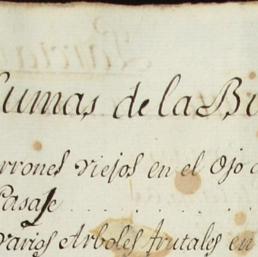 Sumas de la Bu
rrones viejos en el Ojo d
Pasaje . . . . . . . . . .
Varios Arboles frutales en